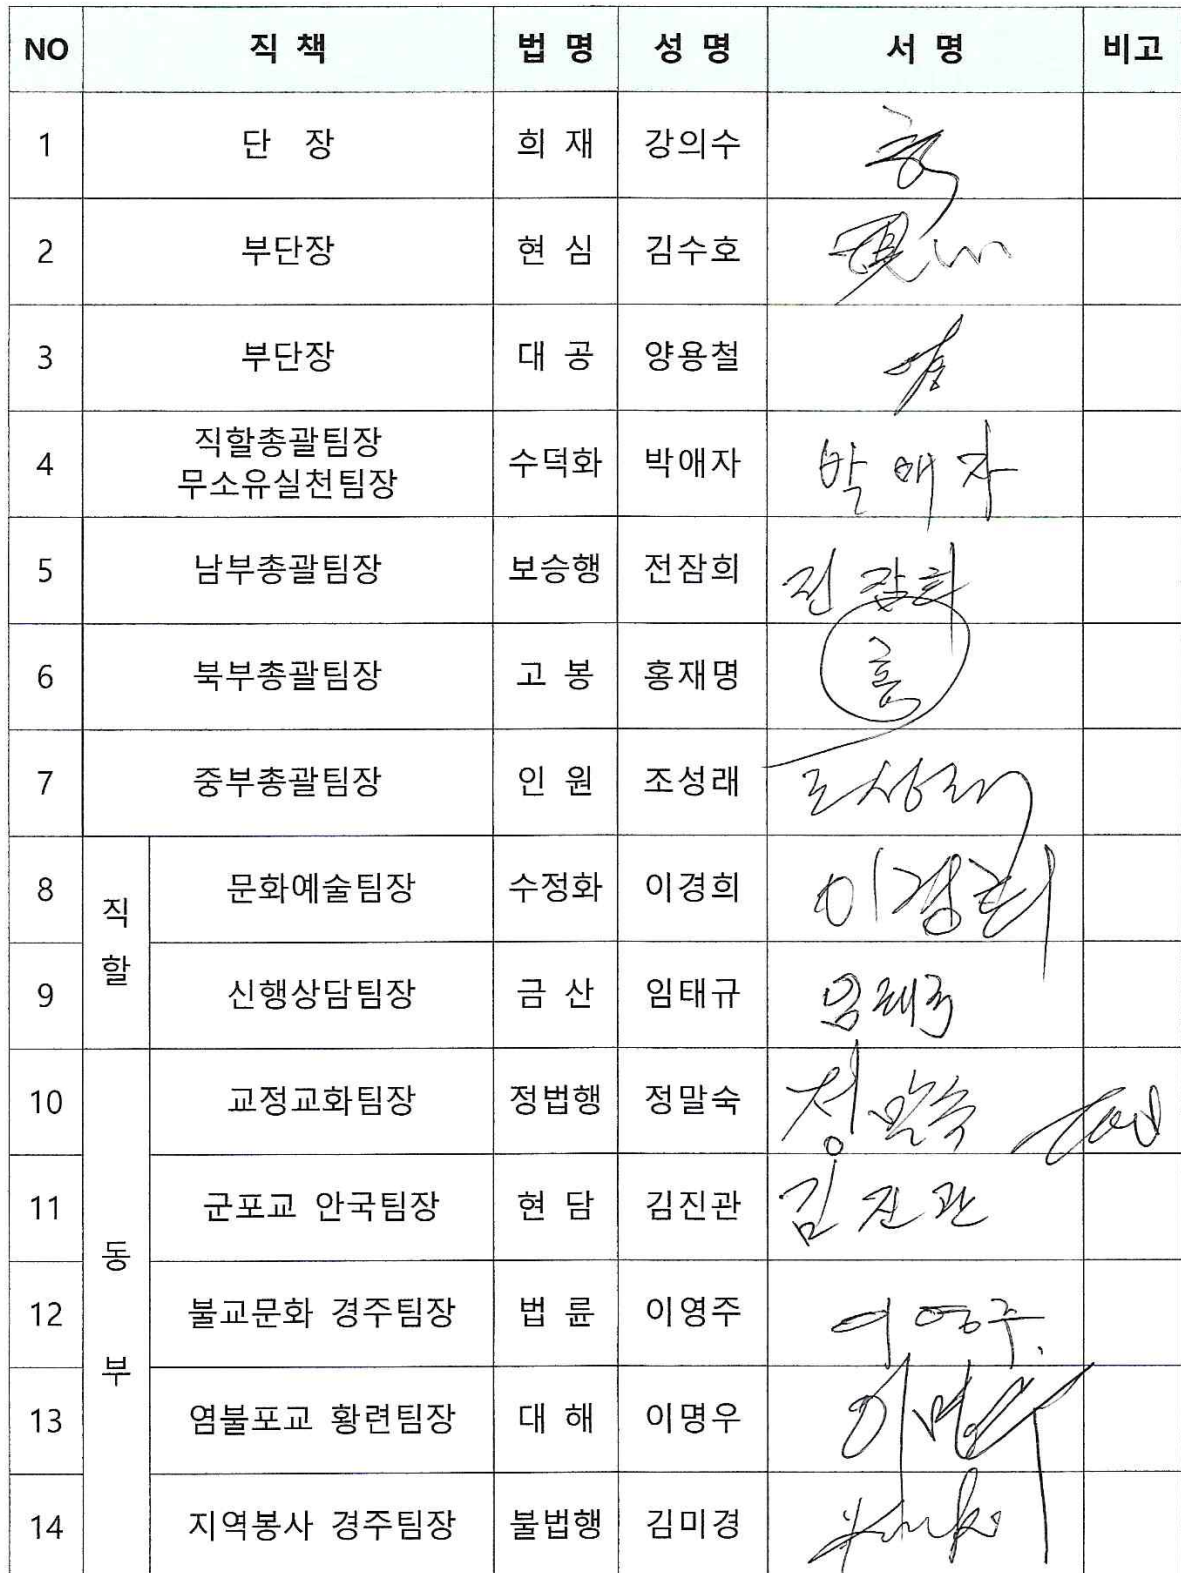 NO 직 책 법 명 성 명 서 명 비고
1 단 장 희 재 강의수
2 부단장 현 심 김수호
3 부단장 대 공 양용철
4 직할총괄팀장 수덕화 박애자 박애자
무소유실천팀장
5 남부총괄팀장 보승행 전잠희 전잠희
6 북부총괄팀장 고 봉 홍재명 홍
7 중부총괄팀장 인 원 조성래 조성래
직할
8 문화예술팀장 수정화 이경희 이경희
9 신행상담팀장 금 산 임태규 임태규
동부
10 교정교화팀장 정법행 정말숙 정말숙
11 군포교 안국팀장 현 담 김진관 김진관
12 불교문화 경주팀장 법 륜 이영주 이영주
13 염불포교 황련팀장 대 해 이명우 이명우
14 지역봉사 경주팀장 불법행 김미경